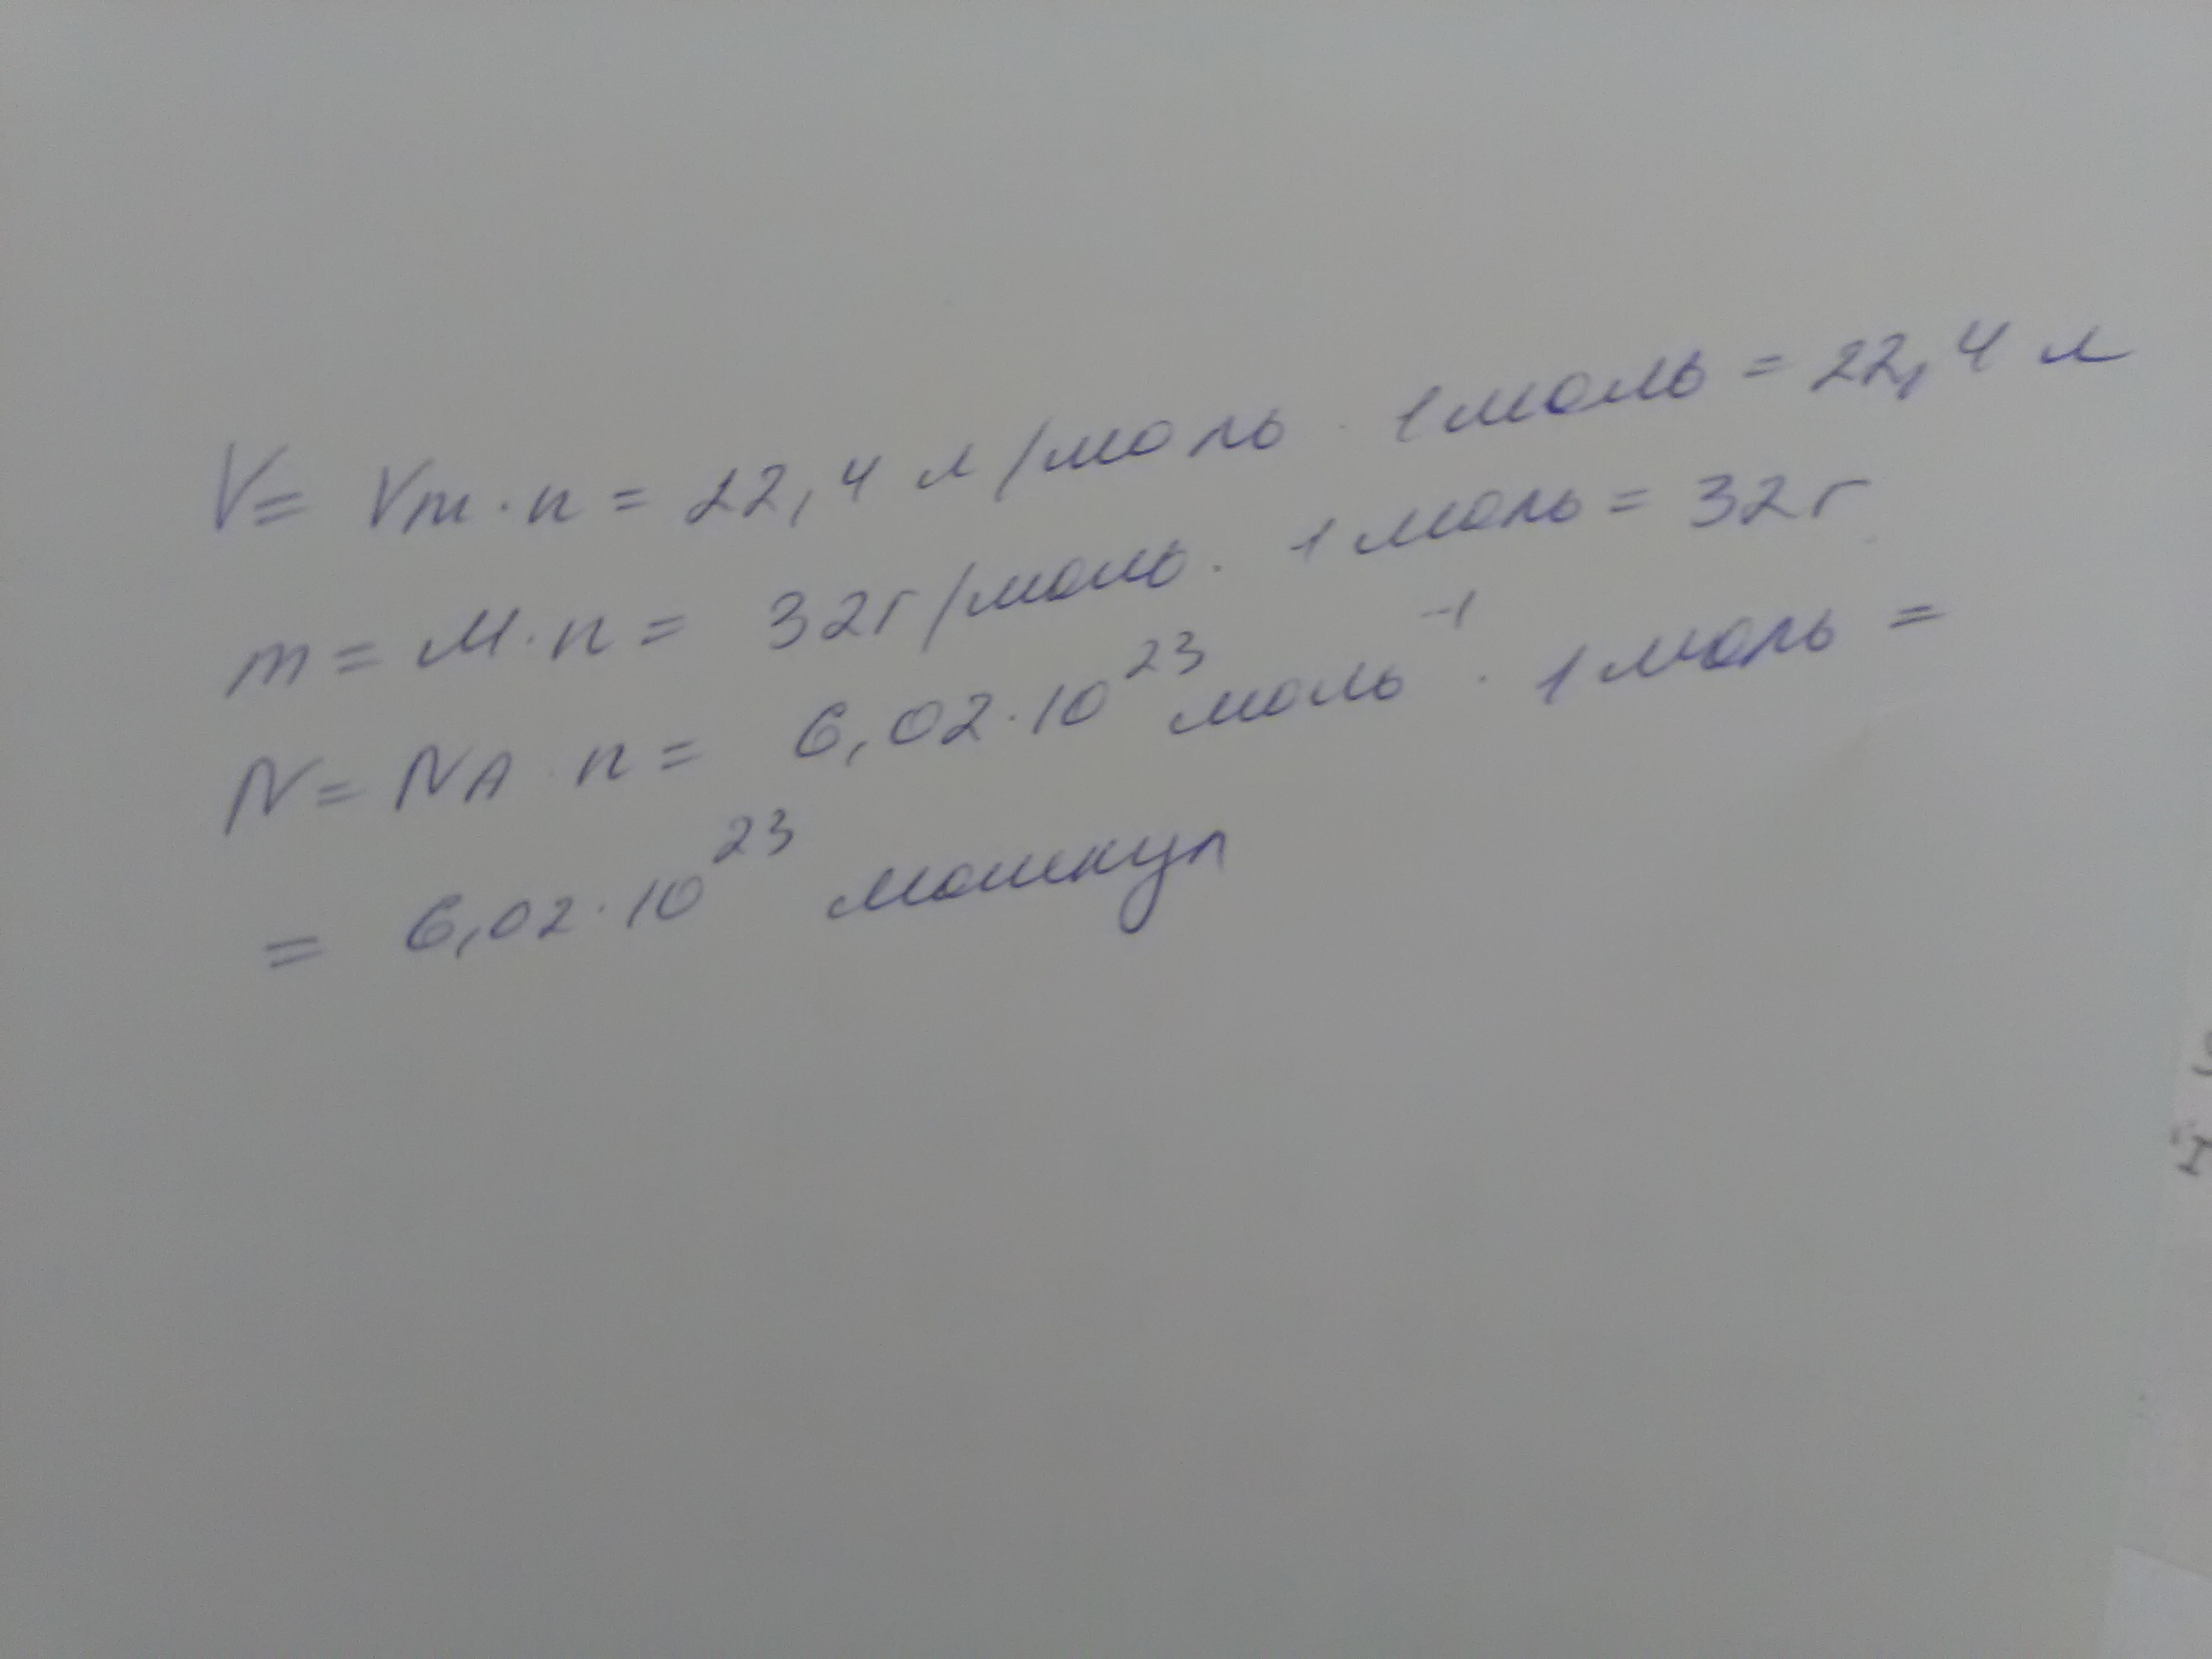 V = Vm · n = 22,4 л/моль · 1 моль = 22,4 л
m = M · n = 32 г/моль · 1 моль = 32 г
N = NA · n = 6,02 · 10²³ моль⁻¹ · 1 моль =
= 6,02 · 10²³ молекул